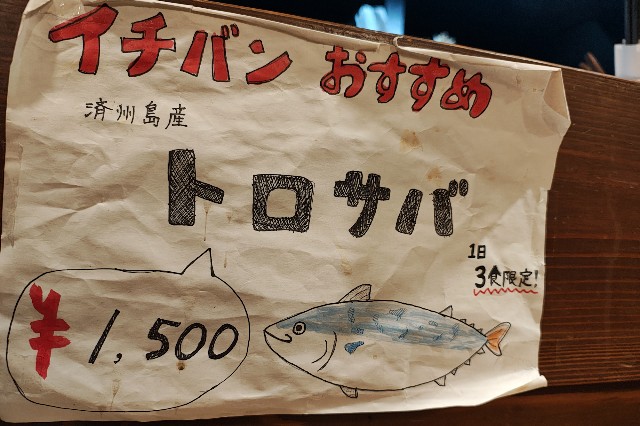 イチバン おすすめ
済州島産
トロサバ
1日
3食限定!
¥1,500